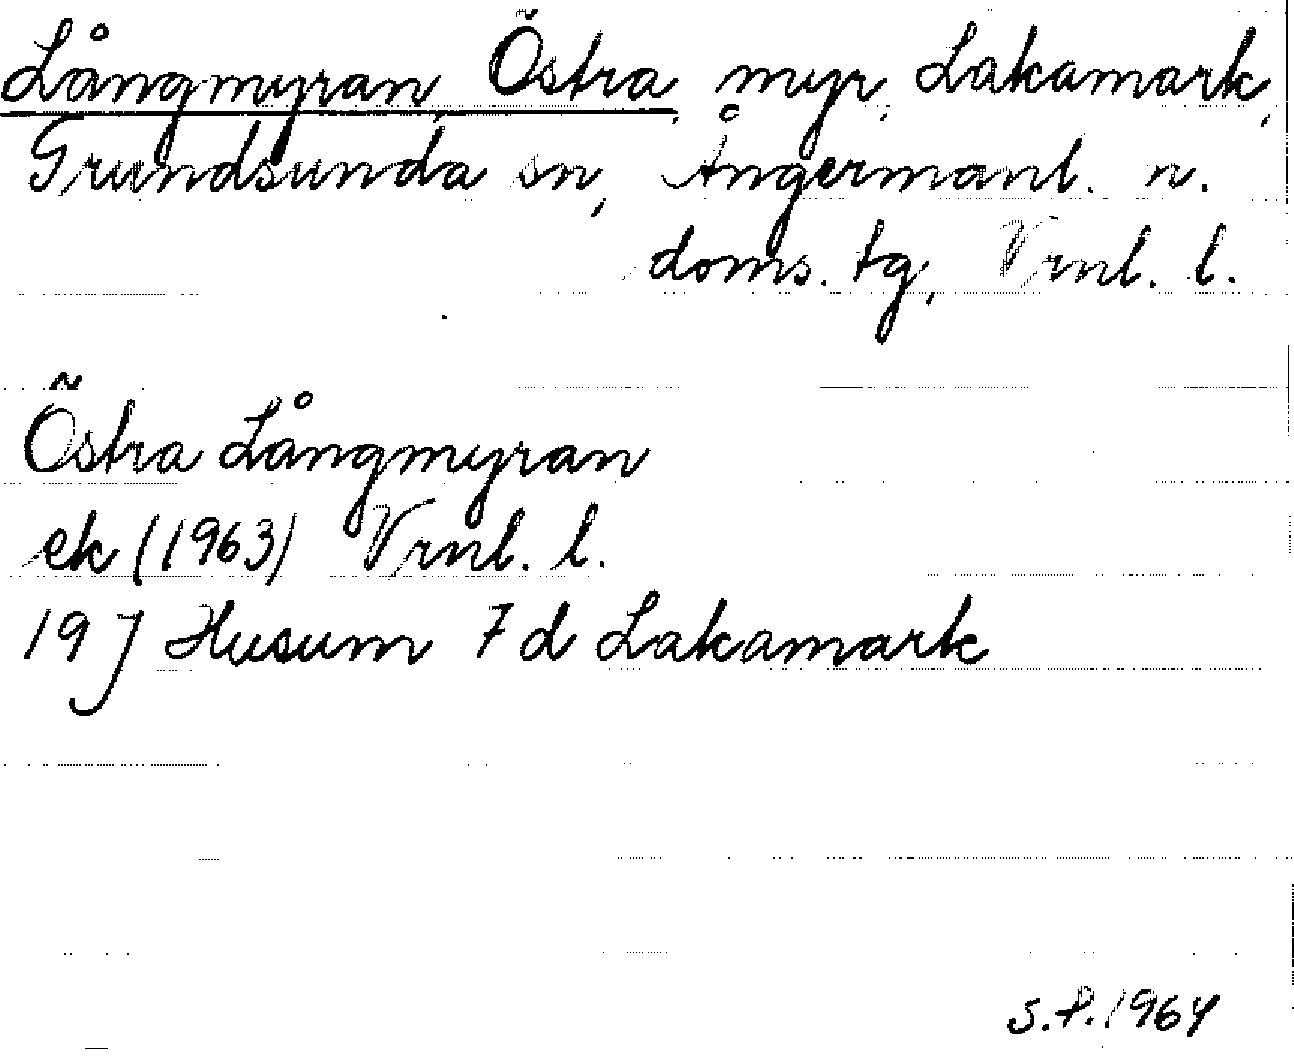 Långmyran, Östra, myr, Lakamark,
Grundsunda sn, Ångermanl. n.
doms. tg, Vrnl. l.
Östra Långmyran
ek (1963) Vrnl. l.
19 J Husum 7 d Lakamark
S.P. 1964